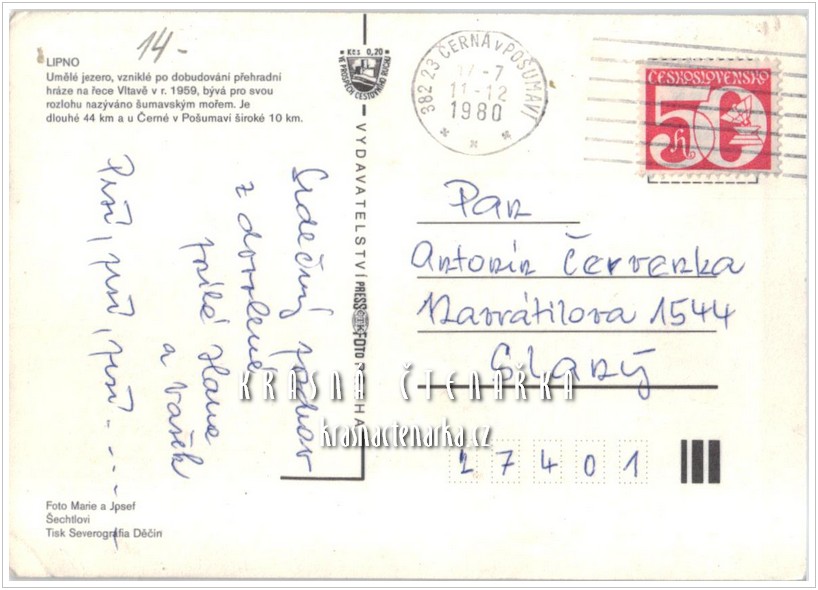 14-
LIPNO
Umělé jezero, vzniklé po dobudování přehradní
hráze na řece Vltavě v r. 1959, bývá pro svou
rozlohu nazýváno šumavským mořem. Je
dlouhé 44 km a u Černé v Pošumaví široké 10 km.
Kčs 0,20
VE PROSPĚCH CESTOVNÍHO RUCHU
382 23 ČERNÁ V POŠUMAVÍ
17-7
11-12
1980
ČESKOSLOVENSKO
50 h
VYDAVATELSTVÍ PRESSFOTO PRAHA
Srdečný pozdrav
z dovolené
posílá Hana
a Vašek
Prší, prší, prší . - . -
Pan
Antonín Červenka
Navrátilova 1544
Slaný
27401
KRASNA ČTENAŘKA
krasnactenarka.cz
Foto Marie a Josef
Šechtlovi
Tisk Severografia Děčín